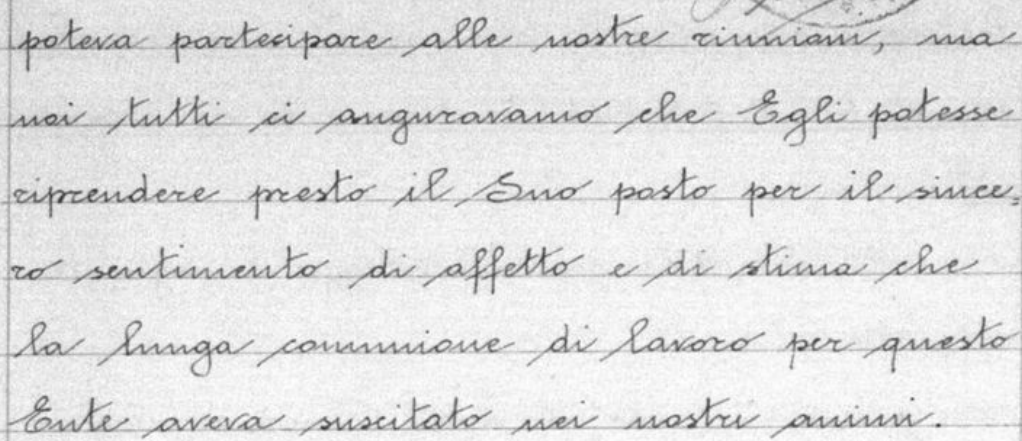 poteva partecipare alle nostre riunioni, ma
noi tutti ci auguravamo che Egli potesse
riprendere presto il Suo posto per il since=
ro sentimento di affetto e di stima che
la lunga comunione di lavoro per questo
Ente aveva suscitato nei nostri animi.